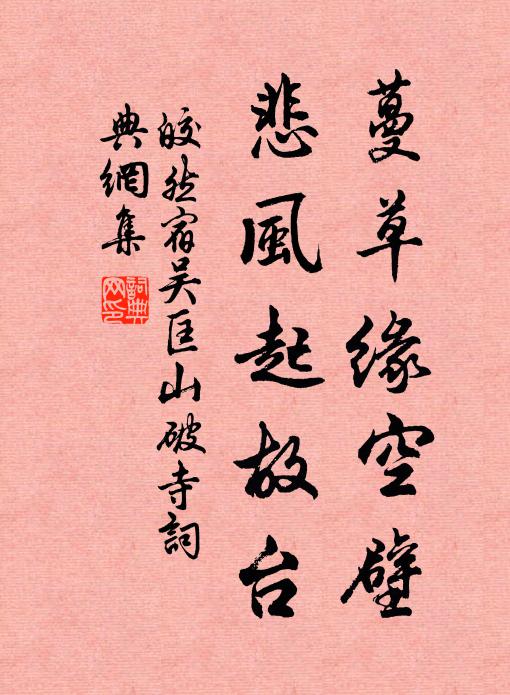 蔓草緣空壁
悲風起故台
皎然宿吴匡山破寺詞
典網集
詞典网印